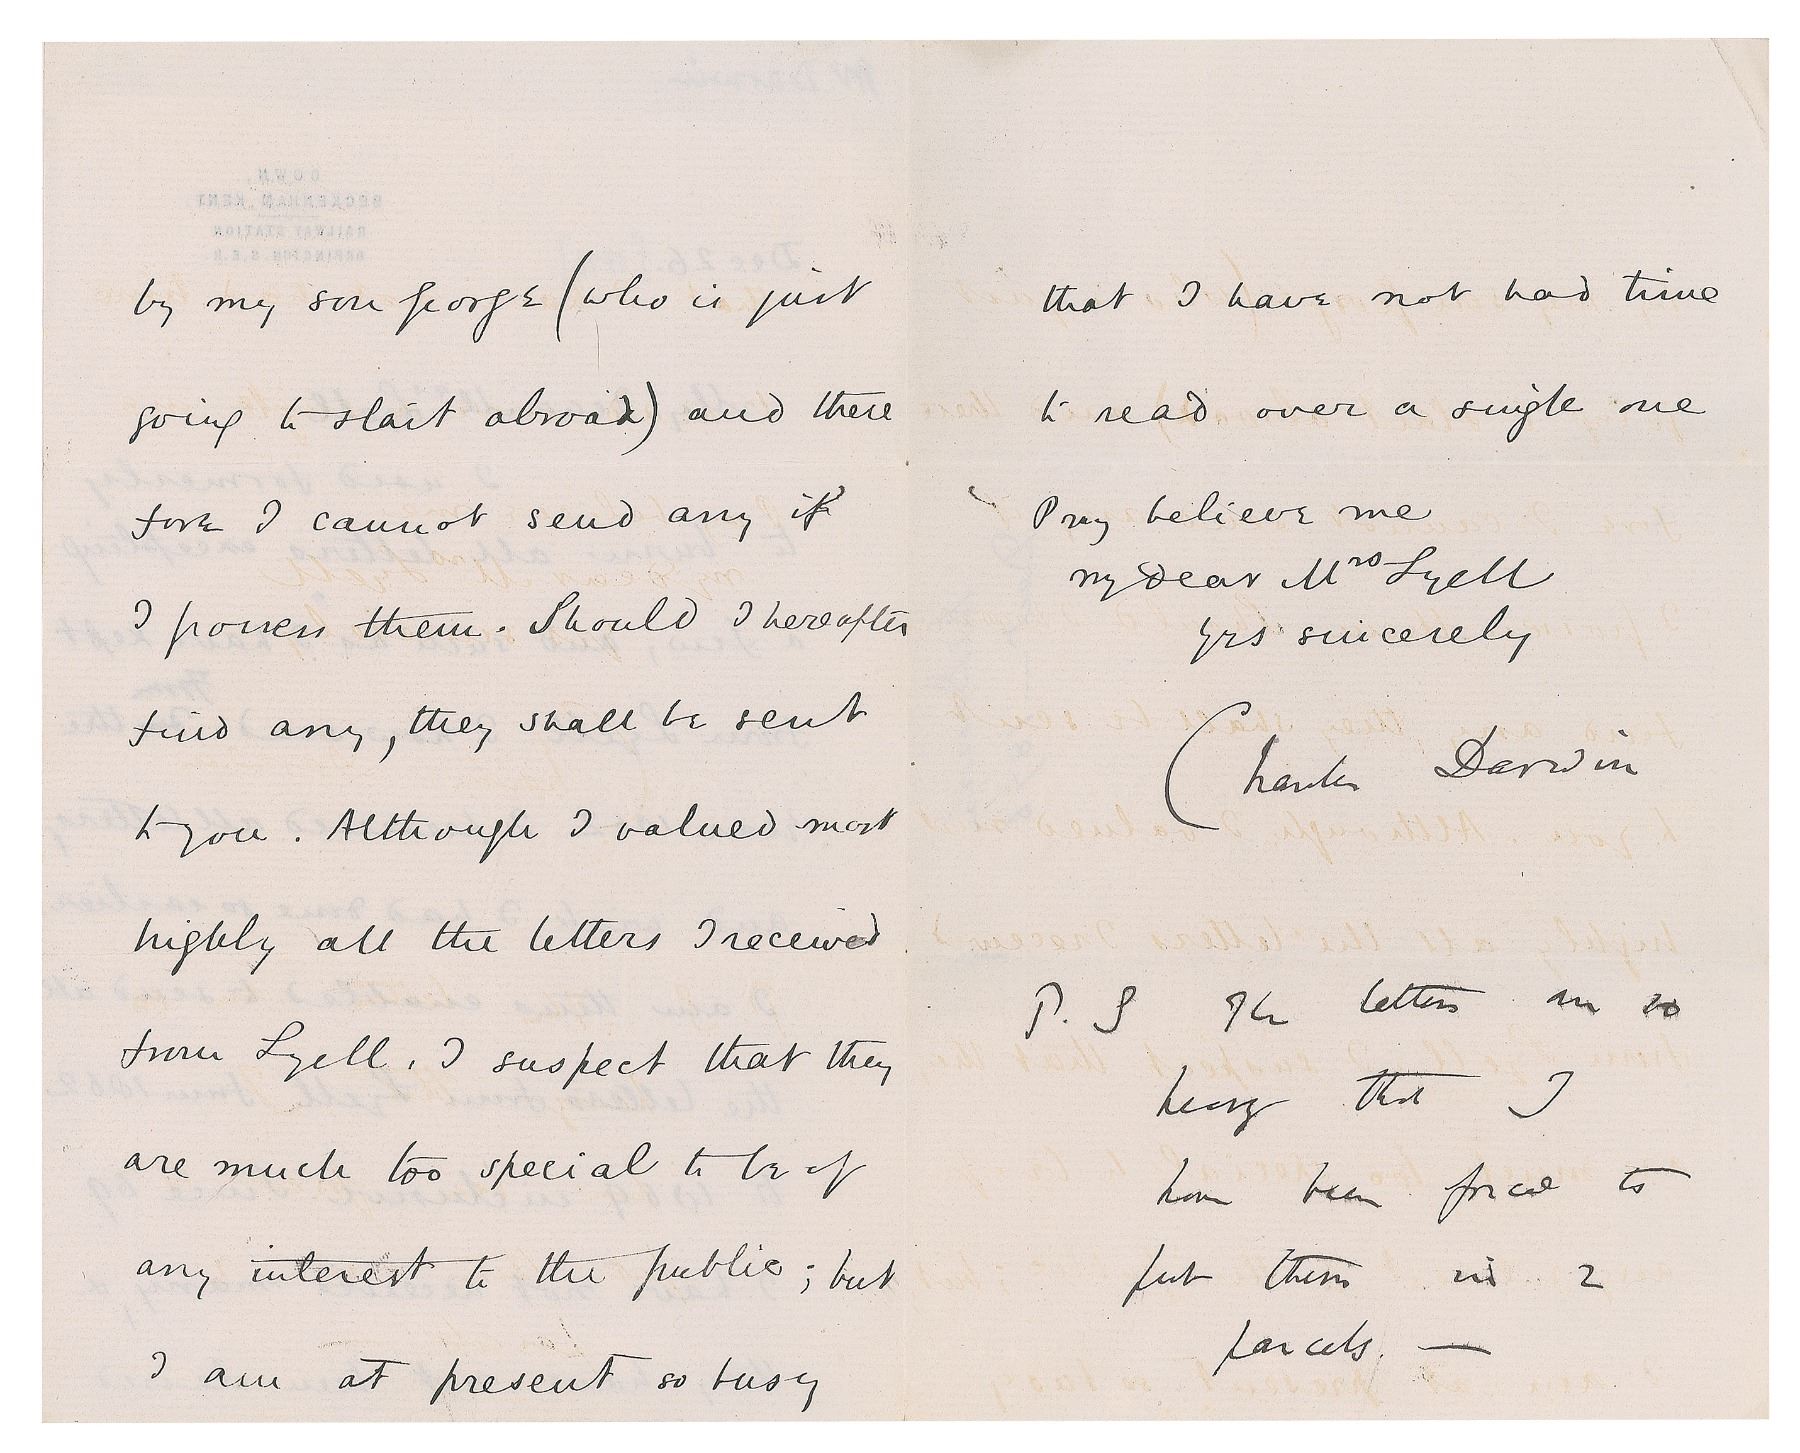 by my son George (who is just
going to start abroad) and there
fore I cannot send any if
I possess them. Should I hereafter
find any, they shall be sent
to you. Although I valued most
highly all the letters I received
from Lyell, I suspect that they
are much too special to be of
any interest to the public; but
I am at present so busy
that I have not had time
to read over a single one
Pray believe me
my dear Mrs Lyell
yrs sincerely
Charles Darwin
P. S The letters are so
heavy that I
have been forced to
put them in 2
parcels. —
DOWN,
BECKENHAM, KENT
RAILWAY STATION
ORPINGTON. S.E.R.
Dec 26